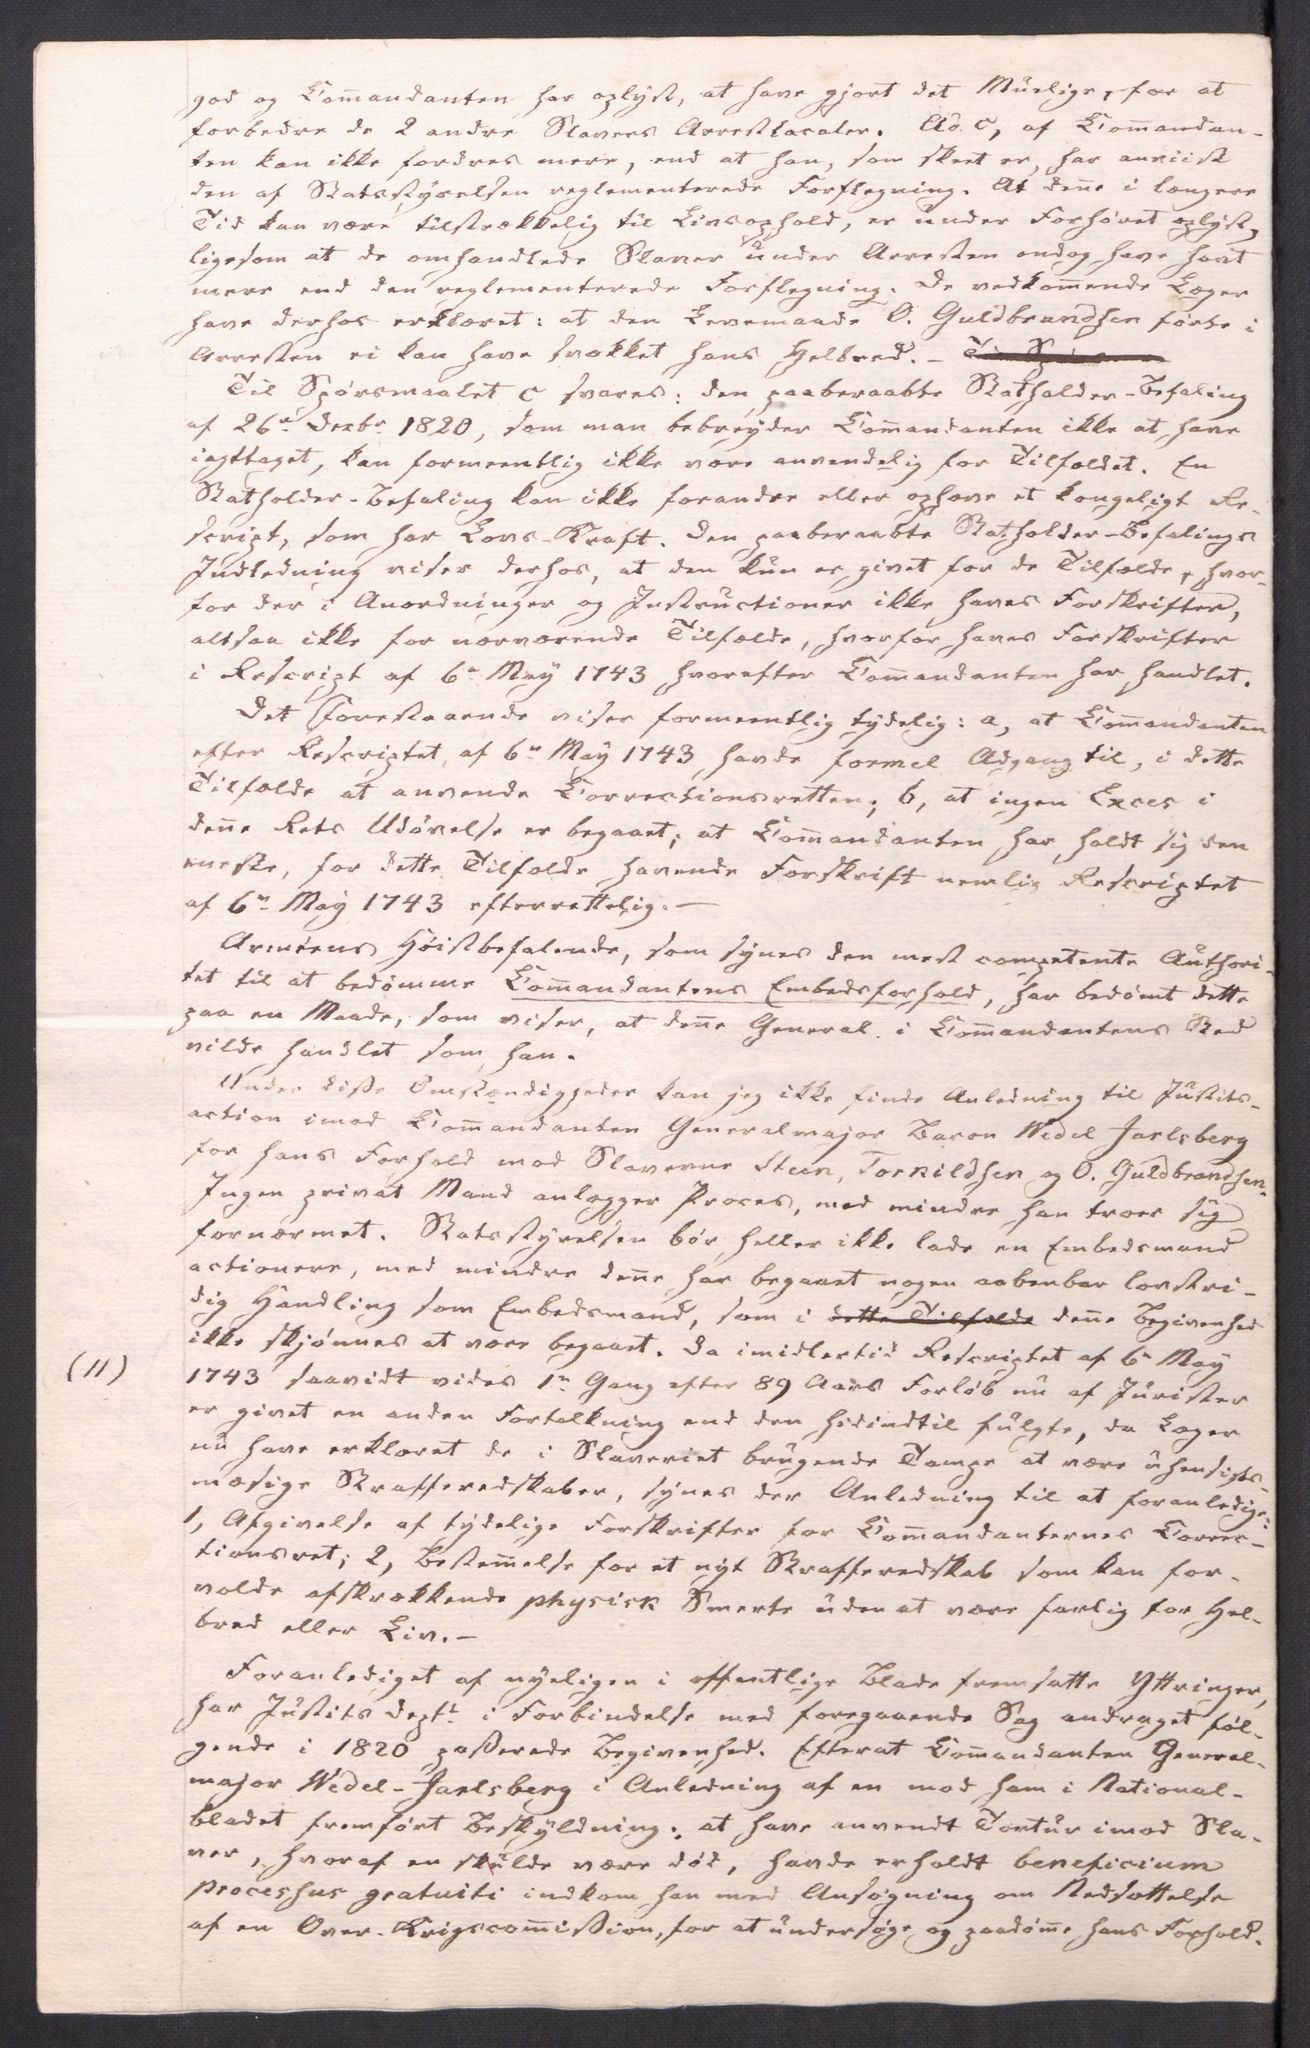 god og Com̄andanten har oplyst, at have gjort det Muelige, for at
forbedre de 2 andre Slavers Arrestlocaler. Ad. c, af Com̄andan-
ten kan ikke fordres mere, end at han, som skeet er, har anviist
den af Statsstyrelsen reglementerede Forflegning. At den̄e i længere
Tid kan være tilstrækkelig til Livsophold, er under Forhøret oplyst,
ligesom at de omhandlede Slaver under Arresten endog have havt
mere end den reglementerede Forflegning. De vedkom̄ende Læger
have derhos erklæret: at den Levemaade O. Guldbrandsen førte i
Arresten ei kan have svækket hans Helbred. –
Til Spørsmaalet c svares: den paaberaabte Statholder-Befaling
af 26de Decbr 1820, som man bebreyder Com̄andanten ikke at have
iagttaget, kan formeentlig ikke være anvendelig for Tilfældet. En
Statholder-Befaling kan ikke forandre eller ophæve et kongeligt Re-
script, som har Lovs-Kraft. Den paaberaabte Statholder-Befalings
Indledning viser derhos, at den kun er givet for de Tilfælde, hvor-
for der i Anordninger og Instructioner ikke haves Forskrifter,
altsaa ikke for nærværende Tilfælde, hvorfor haves Forskrifter
i Rescript af 6te May 1743 hvorefter Com̄andanten har handlet.
Det Forestaaende viser formeentlig tydelig: a, at Com̄andanten
efter Rescriptet af 6te May 1743, havde formel Adgang til, i dette
Tilfælde at anvende Correctionsretten; b, at ingen Exces i
den̄e Rets Udøvelse er begaaet; at Com̄andanten har holdt sig den
eneste, for dette Tilfælde havende Forskrift nemlig Rescriptet
af 6te May 1743 efterrettelig. –
Arméens Høistbefalende, som synes den mest competente Authori-
tet til at bedømme Com̄andantens Embedsforhold, har bedømt dette
paa en Maade, som viser, at den̄e General i Com̄andantens Sted
vilde handlet som han.
Under disse Omstændigheder kan jeg ikke finde Anledning til Justits-
action imod Com̄andanten Generalmajor Baron Wedel Jarlsberg
for hans Forhold mod Slaverne Steen, Torkildsen og O. Guldbrandsen.
Ingen privat Mand anlægger Proces, med mindre han troer sig
fornærmet. Statsstyrelsen bør heller ikke lade en Embedsmand
actionere, med mindre den̄e har begaaet nogen aabenbar lovstri-
dig Handling som Embedsmand, som i dette Tilfælde den̄e Begivenhed
ikke skjønnes at være begaaet. Da imidlertid Rescriptet af 6te May
(11)
1743 saavidt vides 1te Gang efter 89 Aars Forløb nu af Jurister
er givet en anden Fortolkning end den hidindtil fulgte, da Læger
nu have erklæret de i Slaveriet brugende Tampe at være uhensigts-
mæsige Strafferedskaber, synes der Anledning til at foranledige:
1, Afgivelse af tydelige Forskrifter for Com̄andanternes Correc-
tionsret; 2, Bestem̄else for et nyt Strafferedskab som kan for-
volde afskrækkende physisk Smerte uden at være farlig for Hel-
bred eller Liv. –
Foranlediget af nyeligen i offentlige Blade fremsatte Yttringer,
har Justits Deptt i Forbindelse med foregaaende Sag andraget føl-
gende i 1820 passerede Begivenhed. Efterat Com̄andanten General-
major Wedel-Jarlsberg i Anledning af en mod ham i National-
bladet fremført Beskyldning: at have anvendt Tortur imod Sla-
ver, hvoraf en skulde være død, havde erholdt beneficium
processus gratuiti indkom han med Ansøgning om Nedsættelse
af en Over-Krigscom̄ission, for at undersøge og paadøm̄e hans Forhold.